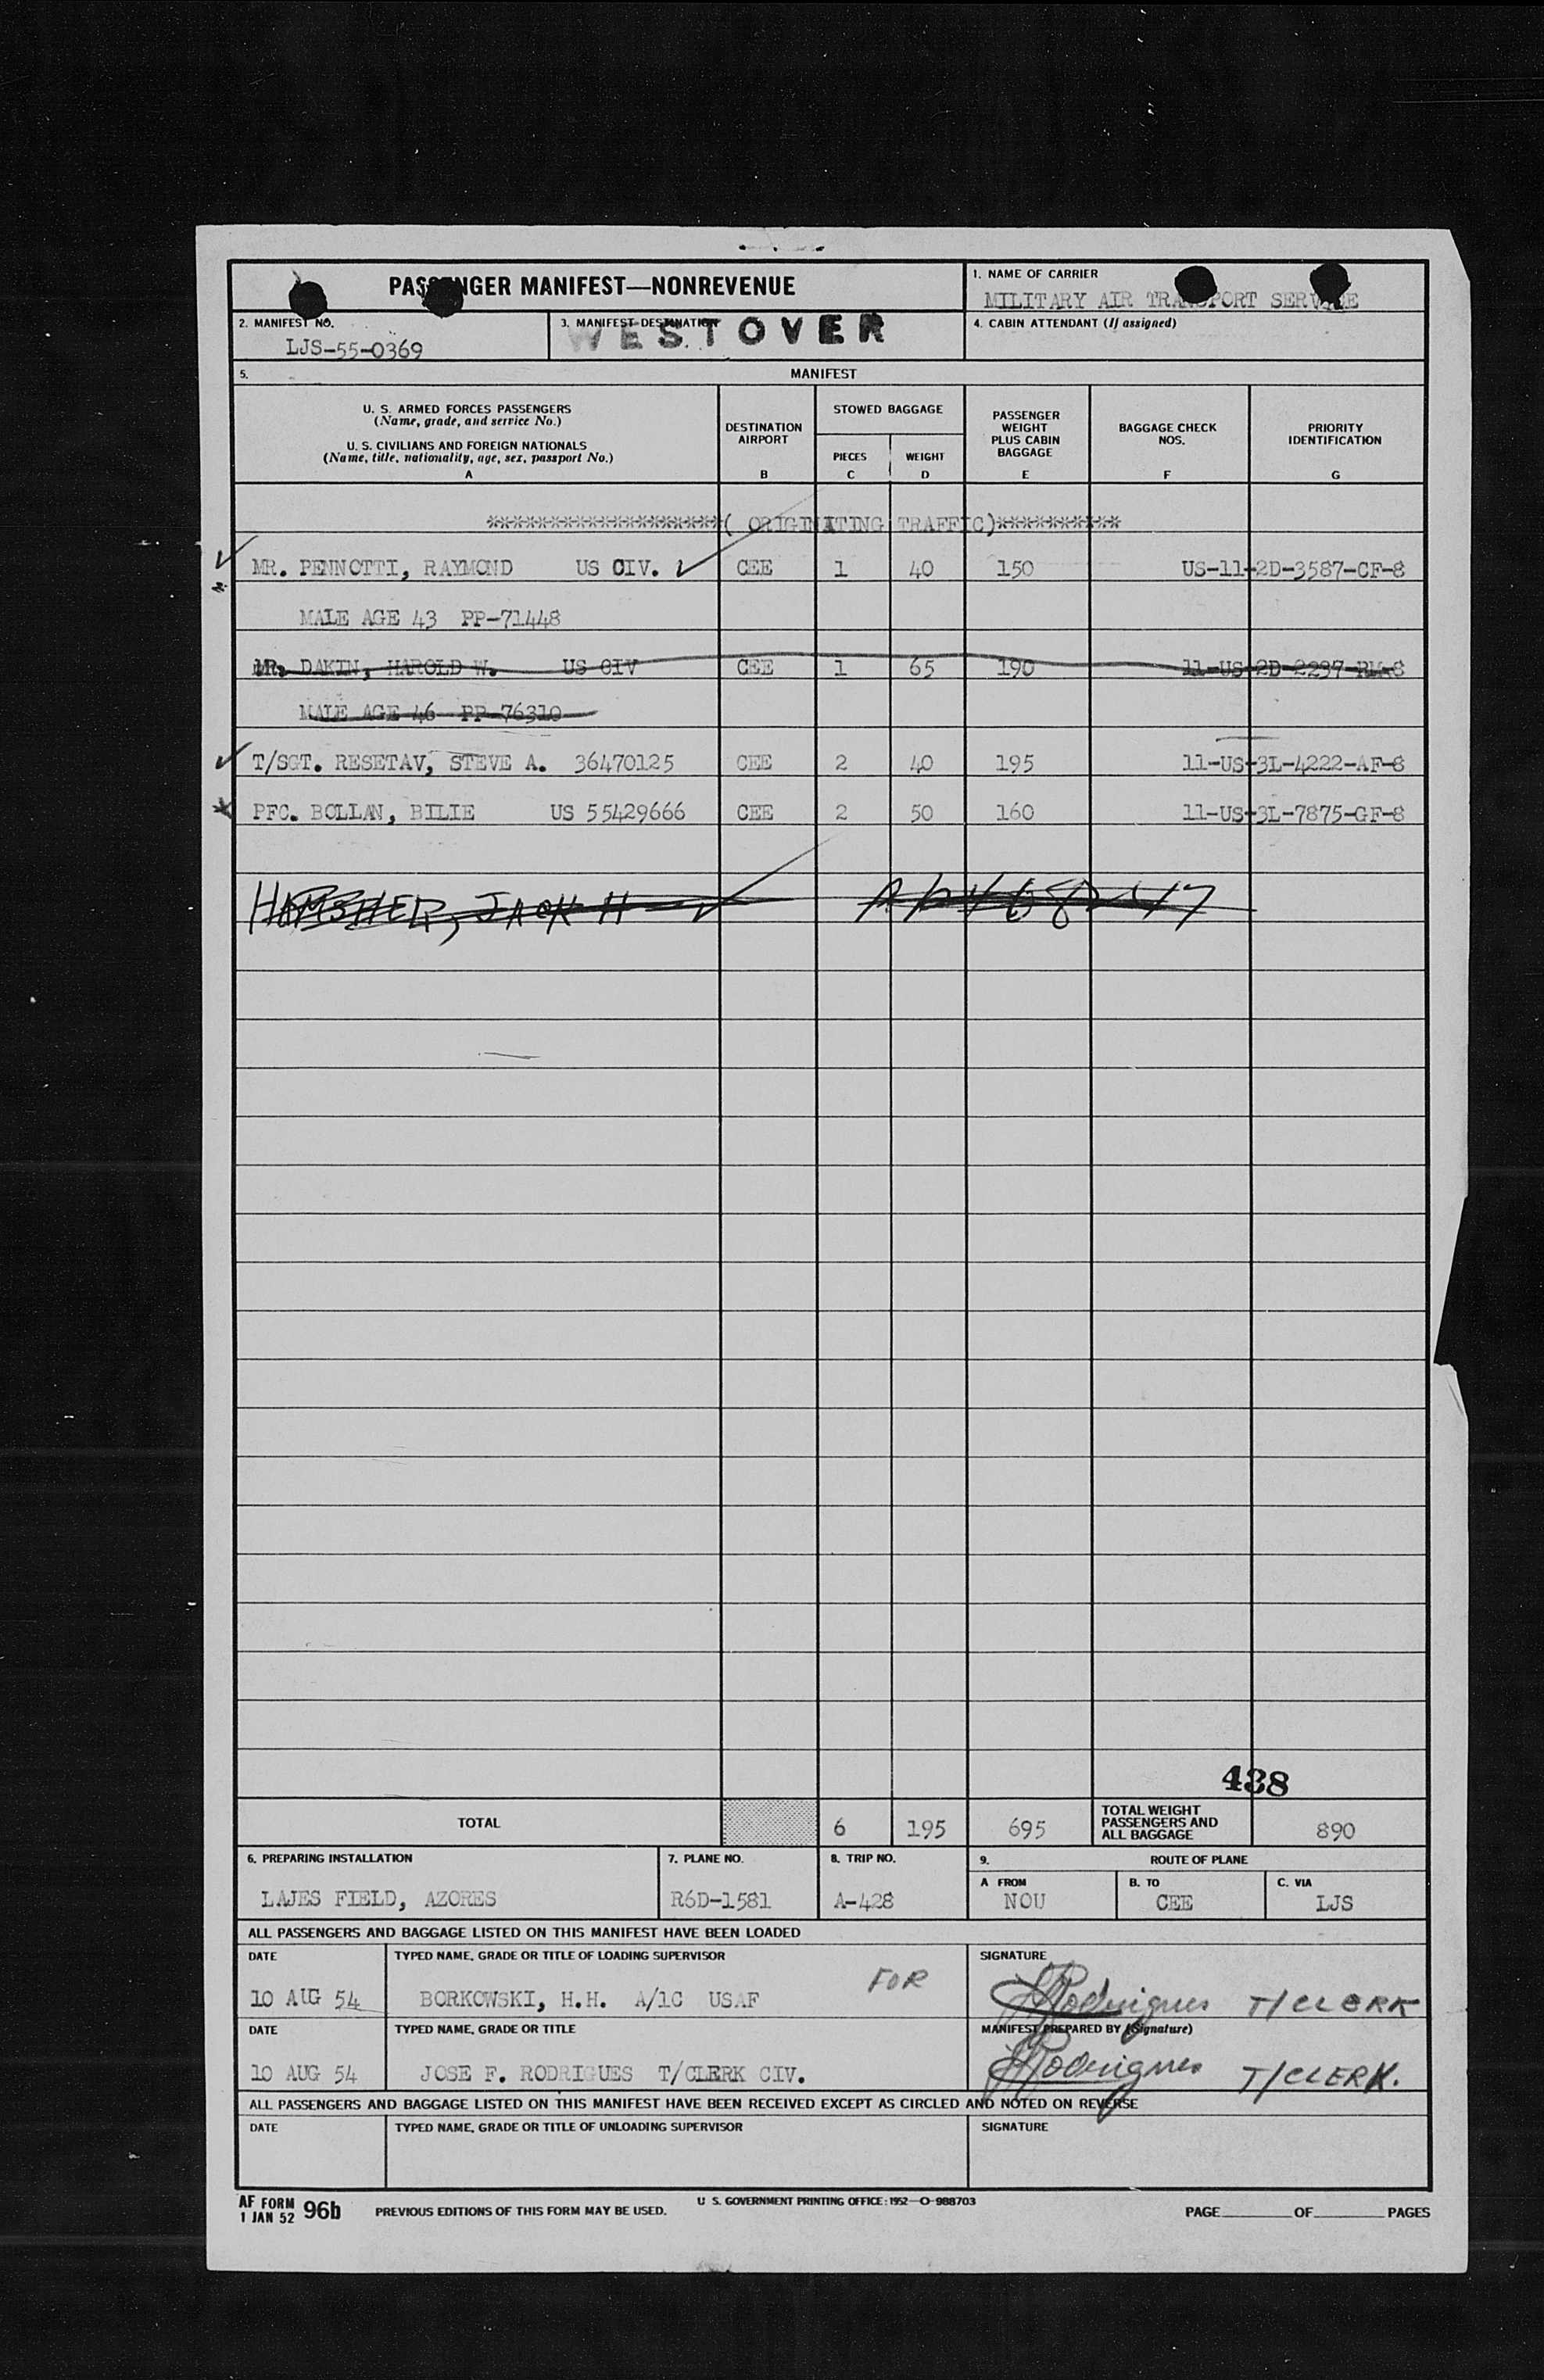 PASSENGER MANIFEST—NONREVENUE
1. NAME OF CARRIER
MILITARY AIR TRANSPORT SERVICE
2. MANIFEST NO.
LJS-55-0369
3. MANIFEST DESTINATION
WESTOVER
4. CABIN ATTENDANT (If assigned)
5. MANIFEST
U. S. ARMED FORCES PASSENGERS
(Name, grade, and service No.)
U. S. CIVILIANS AND FOREIGN NATIONALS
(Name, title, nationality, age, sex, passport No.)
A
DESTINATION
AIRPORT
B
STOWED BAGGAGE
PIECES
C
WEIGHT
D
PASSENGER
WEIGHT
PLUS CABIN
BAGGAGE
E
BAGGAGE CHECK
NOS.
F
PRIORITY
IDENTIFICATION
G
*******************( ORIGINATING TRAFFIC)**********
MR. PENNOTTI, RAYMOND US CIV. CEE 1 40 150 US-11-2D-3587-CF-8
MALE AGE 43 PP-71448
MR. DAKIN, HAROLD W. US CIV CEE 1 65 190 11-US-2D-2237-RM-8
MALE AGE 46 PP-76310
T/SGT. RESETAV, STEVE A. 36470125 CEE 2 40 195 11-US-3L-4222-AF-8
PFC. BOLLAN, BILIE US 55429666 CEE 2 50 160 11-US-3L-7875-GF-8
HAMSHER, JACK H
438
TOTAL 6 195 695
TOTAL WEIGHT
PASSENGERS AND
ALL BAGGAGE
890
6. PREPARING INSTALLATION
LAJES FIELD, AZORES
7. PLANE NO.
R6D-1581
8. TRIP NO.
A-428
9. ROUTE OF PLANE
A FROM
NOU
B. TO
CEE
C. VIA
LJS
ALL PASSENGERS AND BAGGAGE LISTED ON THIS MANIFEST HAVE BEEN LOADED
DATE
10 AUG 54
TYPED NAME, GRADE OR TITLE OF LOADING SUPERVISOR
BORKOWSKI, H.H. A/1C USAF FOR
SIGNATURE
JFRodrigues T/CLERK
DATE
10 AUG 54
TYPED NAME, GRADE OR TITLE
JOSE F. RODRIGUES T/CLERK CIV.
MANIFEST PREPARED BY (Signature)
JFRodrigues T/CLERK.
ALL PASSENGERS AND BAGGAGE LISTED ON THIS MANIFEST HAVE BEEN RECEIVED EXCEPT AS CIRCLED AND NOTED ON REVERSE
DATE
TYPED NAME, GRADE OR TITLE OF UNLOADING SUPERVISOR
SIGNATURE
AF FORM
1 JAN 52 96b
PREVIOUS EDITIONS OF THIS FORM MAY BE USED.
U S. GOVERNMENT PRINTING OFFICE: 1952—O-988703
PAGE OF PAGES